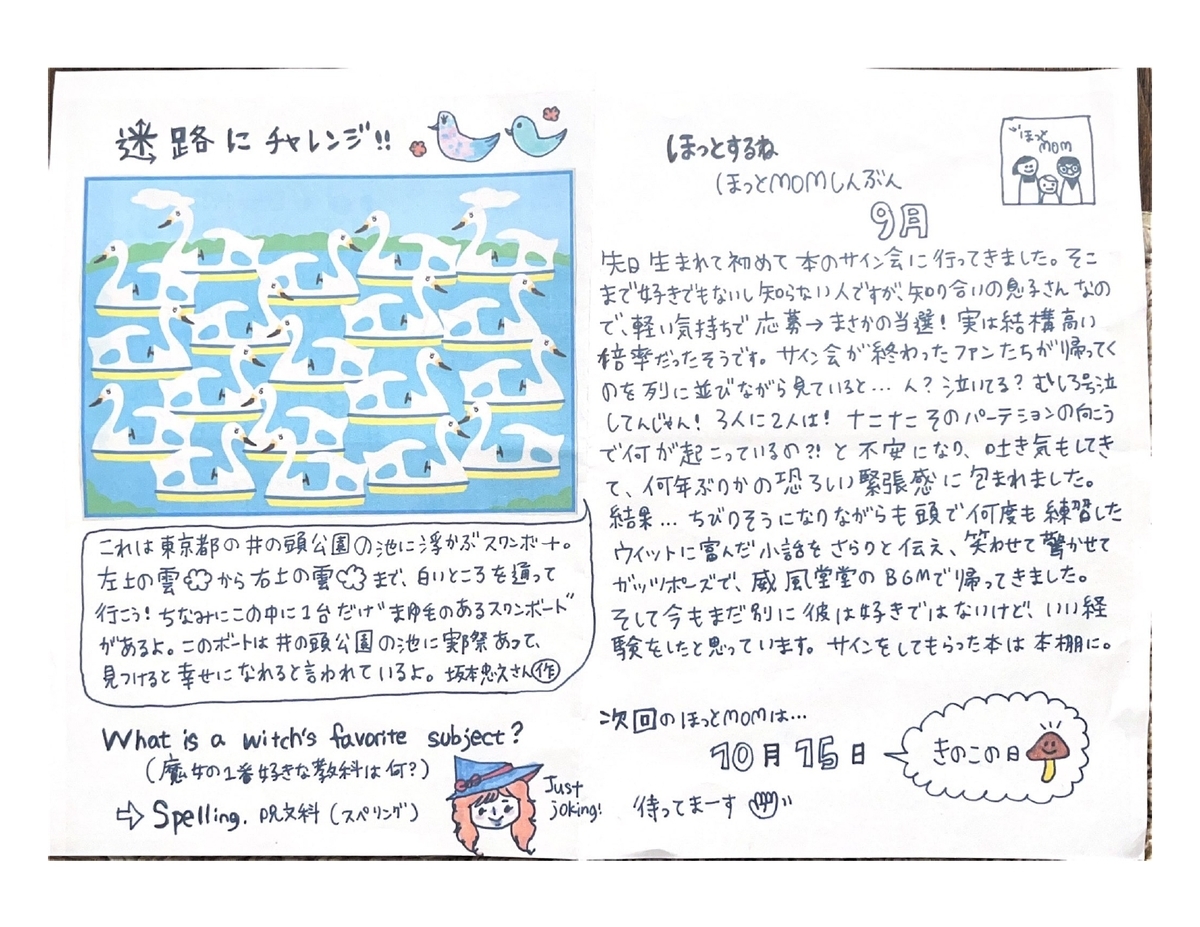 迷路にチャレンジ!!
これは東京都の井の頭公園の池に浮かぶスワンボート。
左上の雲から右上の雲まで、白いところを通って
行こう! ちなみにこの中に1台だけ"まゆ毛のあるスワンボート"
があるよ。このボートは井の頭公園の池に実際あって、
見つけると幸せになれると言われているよ。坂本忠久さん作
What is a witch's favorite subject?
(魔女の1番好きな教科は何?)
⇨ Spelling. 呪文科(スペリング)
Just
joking!
ほっとするね
ほっとMOMしんぶん
9月
ほっと
MOM
先日生まれて初めて本のサイン会に行ってきました。そこ
まで好きでもないし知らない人ですが、知り合いの息子さんなの
で、軽い気持ちで応募→まさかの当選! 実は結構高い
倍率だったそうです。サイン会が終わったファンたちが帰ってく
のを列に並びながら見ていると… ん? 泣いてる? むしろ号泣
してんじゃん! 3人に2人は! ナニナニそのパーテションの向こう
で何が起こっているの?! と不安になり、吐き気もしてき
て、何年ぶりかの恐ろしい緊張感に包まれました。
結果… ちびりそうになりながらも頭で何度も練習した
ウィットに富んだ小話をさらりと伝え、笑わせて驚かせて
ガッツポーズで、威風堂堂のBGMで帰ってきました。
そして今もまだ別に彼は好きではないけど、いい経
験をしたと思っています。サインをしてもらった本は本棚に。
次回のほっとMOMは…
10月15日
きのこの日
待ってまーす